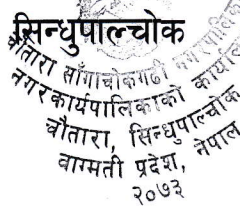 सिन्धुपाल्चोक
चौतारा साँगाचोकगढी नगरपालिका
नगरकार्यपालिकाको कार्यालय
चौतारा, सिन्धुपाल्चोक
वाग्मती प्रदेश, नेपाल
२०७३